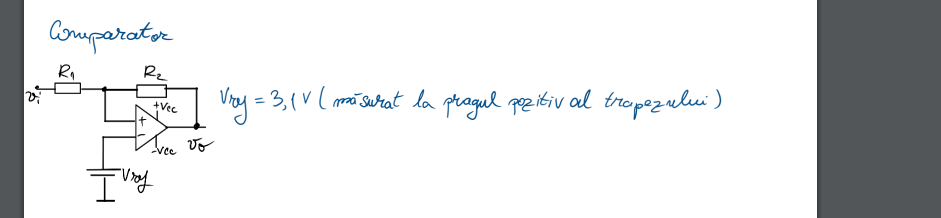 Comparator
R1
R2
vi
+Vcc
+
-
-Vcc
vo
Vref
Vref = 3,1 V ( măsurat la pragul pozitiv al trapezului )